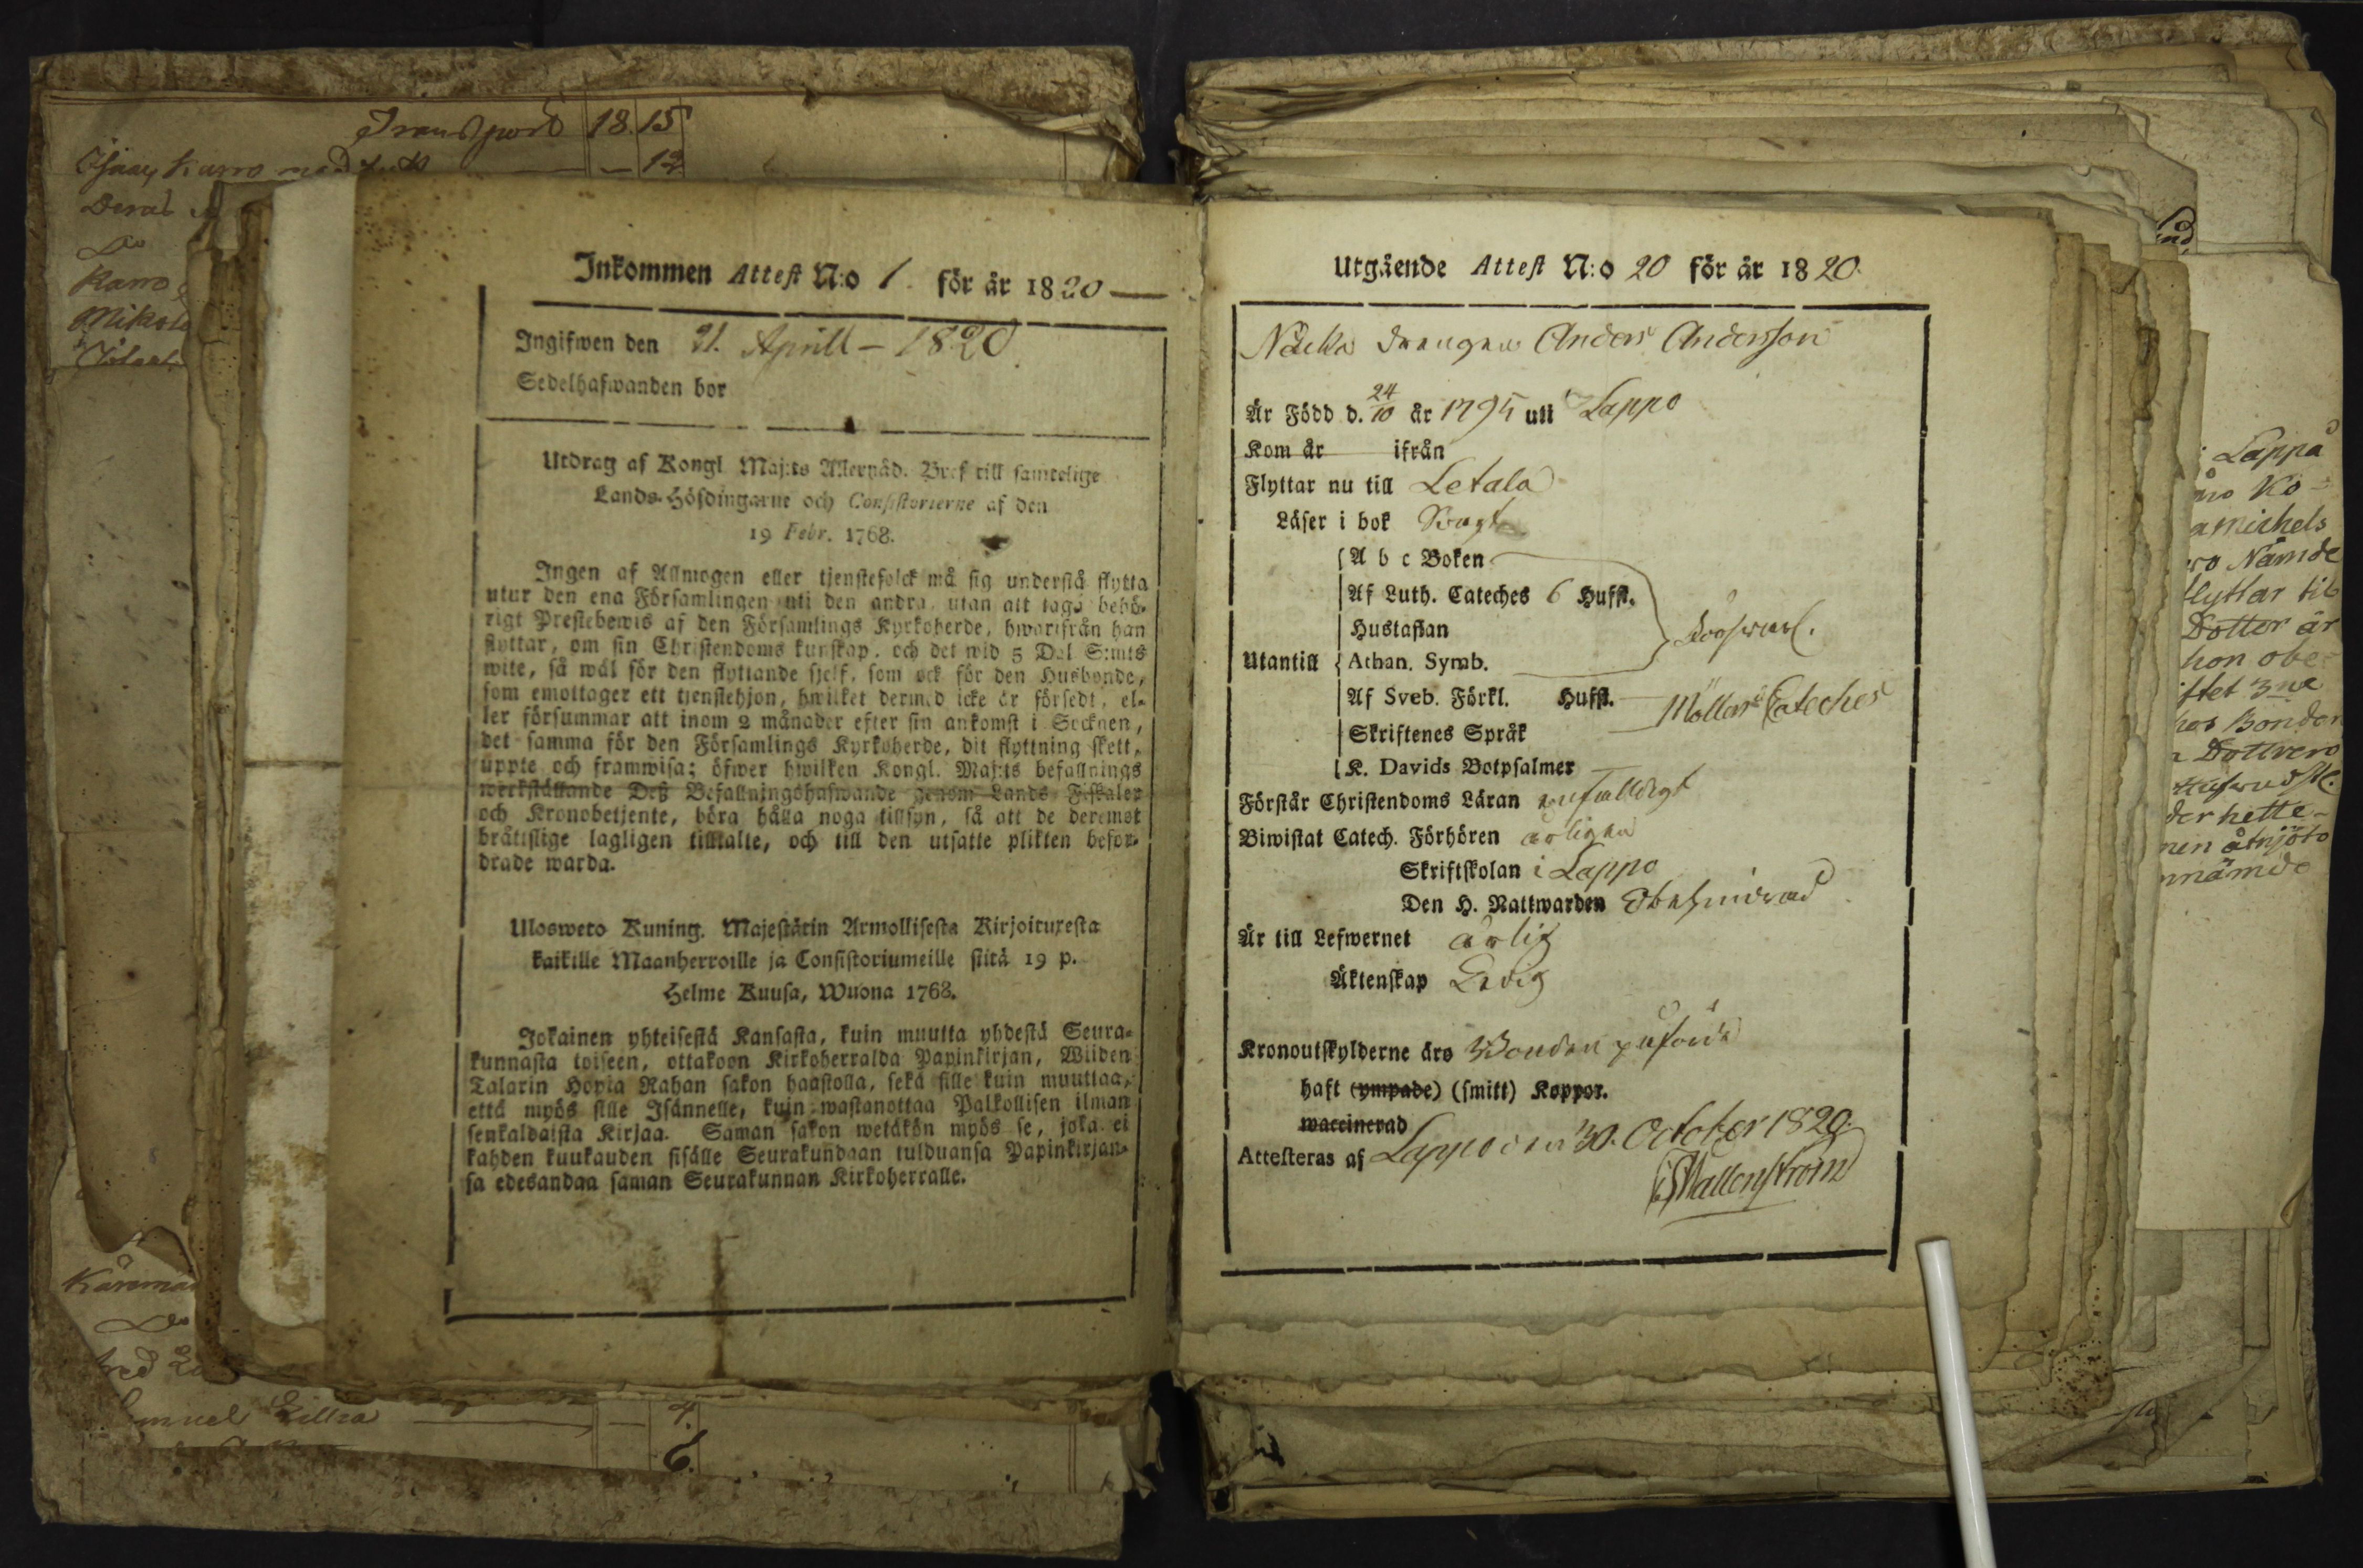 Transport 18. 15
Karro med
12
Deras
Do
Karro
Inkommen Attest N:o 1. för år 1820
Ingifwen den 21. Aprill – 1820
Sedelhafwanden bor
Utdrag af Kongl. Maj:ts Allernåd. Bref till samtelige
Lands-Höfdingarne och Consistorierne af den
19 Febr. 1768.
Ingen af Allmogen eller tjenstefolck må sig understå flytta
utur den ena Församlingen uti den andra, utan att taga behö-
rigt Prestebewis af den Församlings Kyrkoherde, hwarifrån han
flyttar, om sin Christendoms kunskap, och det wid 5 Dal. S:mts
wite, så wäl för den flyttande sjelf, som ock för den Husbonde,
som emottager ett tjenstehjon, hwilket dermed icke är försedt, el-
ler försummar att inom 2 månader efter sin ankomst i Socknen,
det samma för den Församlings Kyrkoherde, dit flyttning skett,
uppte och framwisa; öfwer hwilken Kongl. Maj:ts befallnings
werkställande Deß Befallningshafwande genom Lands Fiskaler
och Kronobetjente, böra hålla noga tillsyn, så att de deremot
bråtislige lagligen tilltalte, och till den utsatte plikten befor-
drade warda.
Ulosweto Kuning. Majestätin Armollisesta Kirjoituxesta
kaikille Maanherroille ja Consistoriumeille siitä 19 p.
Helme Kuusa, Wuona 1768.
Jokainen yhteisestä Kansasta, kuin muutta yhdestä Seura-
kunnasta toiseen, ottakoon Kirkoherralda Papinkirjan, Wiiden
Talarin Hopia Rahan sakon haastolla, sekä sille kuin muuttaa,
että myös sille Isännelle, kuin wastanottaa Palkollisen ilman
senkaldaista Kirjaa. Saman sakon wetäkön myös se, joka ei
kahden kuukauden sisälle Seurakundaan tulduansa Papinkirjan-
sa edesandaa saman Seurakunnan Kirkoherralle.
Do
4.
6.
Utgående Attest N:o 20 för år 1820.
drengen Anders Andersson
Är Född d. 24/10 år 1795 uti Lappo
Kom år ifrån
Flyttar nu till Letala
Läser i bok Swagt
A b c Boken
Af Luth. Cateches 6 Hufst.
Hustaflan
Utantill Athan. Symb.
Af Sveb. Förkl. Hufst. Möllers Cateches
Skriftenes Språk
K. Davids Botpsalmer
Förstår Christendoms Läran enfalldigt
Biwistat Catech. Förhören årligen
Skriftskolan i Lappo
Den H. Nattwarden Obehindrad
Är till Lefwernet ärlig
Äktenskap Ledig
Kronoutskylderne äro Bonden påförde
haft (ympade) (smitt) Koppor.
waccinerad
Attesteras af Lappo den 30. October 1820.
Wallenström
Lappå
Ko-
amichels
Nämde
flyttar til
Dotter är
hon obe-
3ne
Bonden
hette
nämde